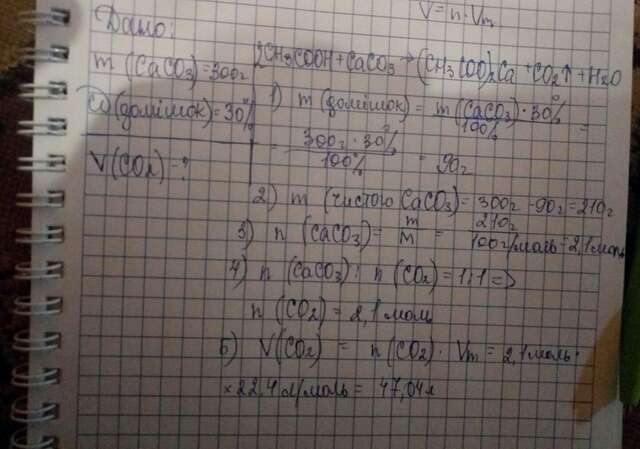 V = n · Vm
Дано:
m (CaCO3) = 300г
ω (домішок) = 30%
V(CO2) - ?
2CH3COOH + CaCO3 → (CH3COO)2Ca + CO2↑ + H2O
1) m (домішок) = m (CaCO3) · 30% / 100% =
= 300г · 30% / 100% = 90г
2) m (чистого CaCO3) = 300г - 90г = 210г
3) n (CaCO3) = m / M = 210г / 100г/моль = 2,1 моль
4) n (CaCO3) : n (CO2) = 1:1 =>
n (CO2) = 2,1 моль
5) V(CO2) = n (CO2) · Vm = 2,1 моль ·
× 22,4 л/моль = 47,04 л